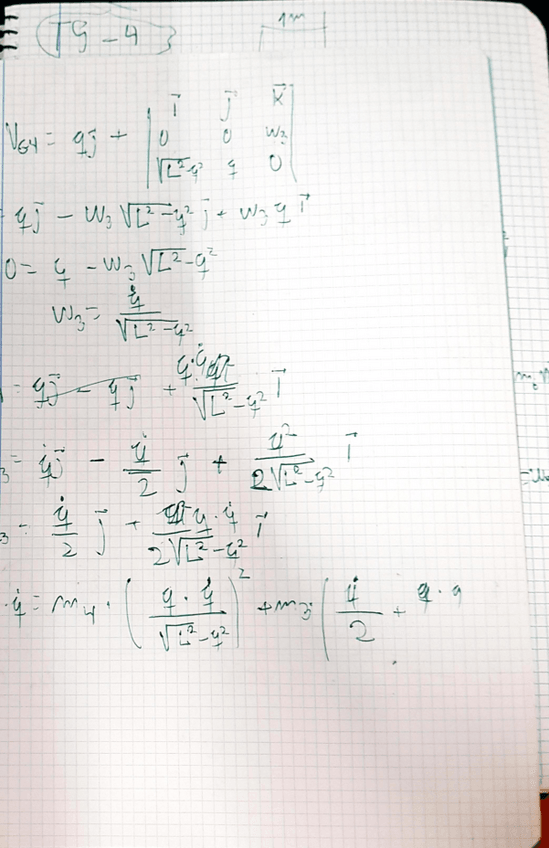 TG-4
1m
V_G4 = q\vec{j} + | \vec{i} \vec{j} \vec{k} |
0 0 w_3
√L²-q² q 0
q̇\vec{j} - w_3 √L²-q² \vec{j} + w_3 q \vec{i}
0 = q̇ - w_3 √L²-q²
w_3 = q̇ / √L²-q²
= q̇\vec{j} - q̇\vec{j} + q·q̇ / √L²-q² \vec{i}
= q̇\vec{j} - q̇/2 \vec{j} + q² / 2√L²-q² \vec{i}
= q̇/2 \vec{j} + q·q̇ / 2√L²-q² \vec{i}
·q̇ = m_4 · ( q·q̇ / √L²-q² )² + m_3 ( q̇/2 + q·q